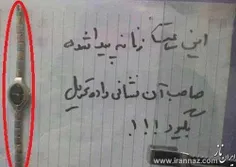 این ساعت زنانه پیدا شده
صاحب آن نشانی داده تحویل
بگیرد !!!
(www.irannaz.com)
ایران ناز